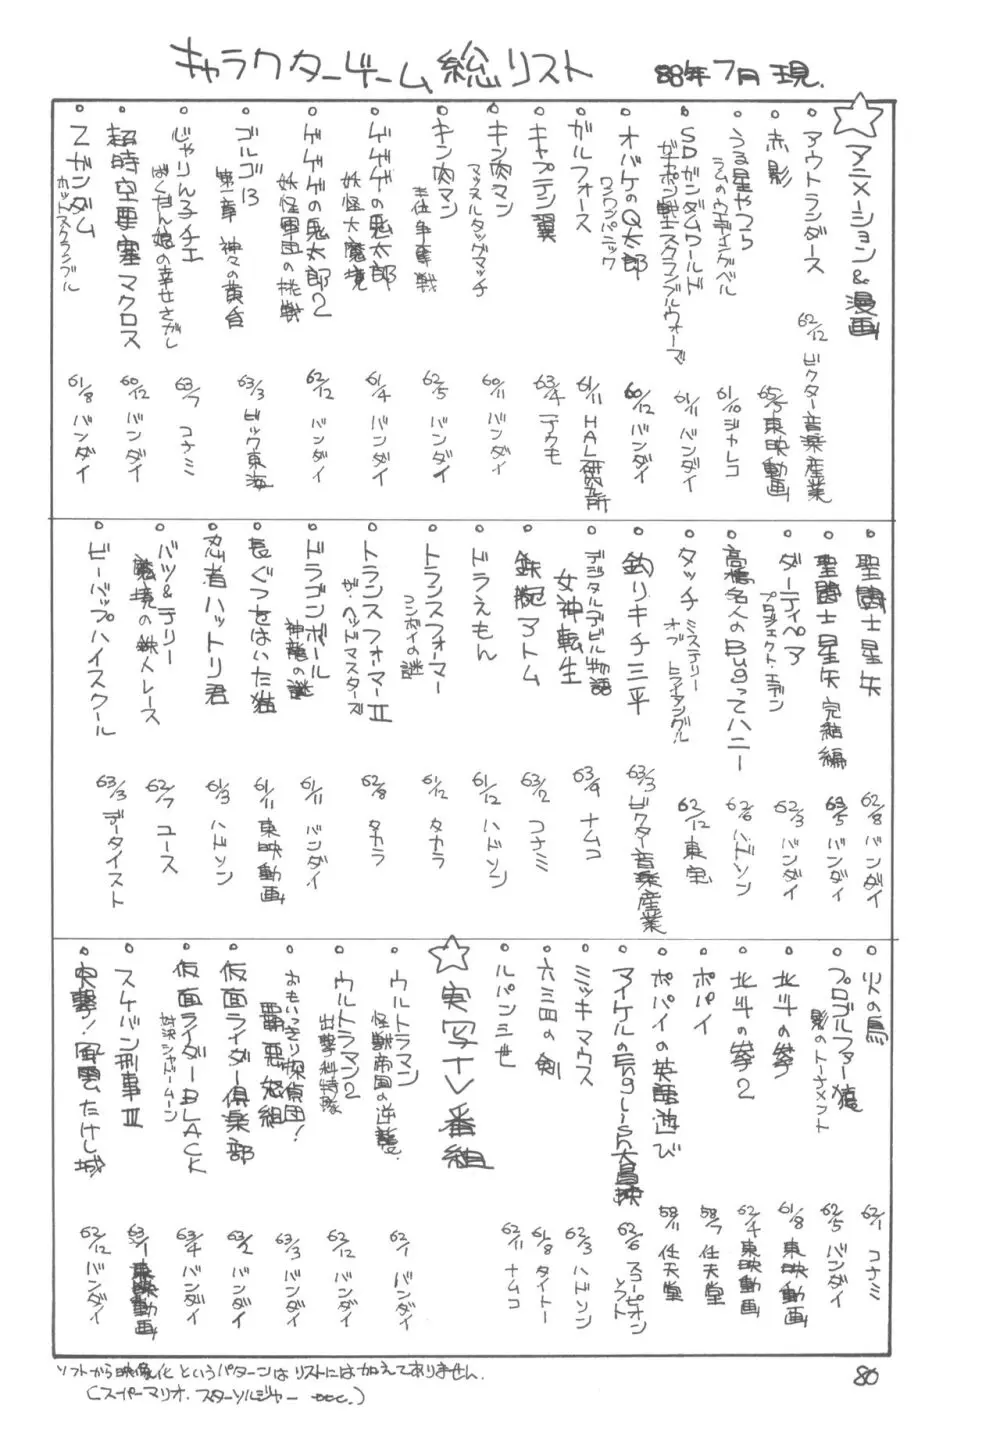 キャラクターゲーム総リスト 88年7月現.
☆アニメーション&漫画
○アウトランダース 62/12 ビクター音楽産業
○赤影 63/5 東映動画
○うる星やつら ラムのウェディングベル 61/10 ジャレコ
○SDガンダムワールド ガチャポン戦士スクランブルウォーズ 61/11 バンダイ
○オバケのQ太郎 ワンワンパニック 60/12 バンダイ
○ガルフォース 61/11 HAL研究所
○キャプテン翼 63/4 テクモ
○キン肉マン マッスルタッグマッチ 60/11 バンダイ
○キン肉マン 王位争奪戦 62/5 バンダイ
○ゲゲゲの鬼太郎 妖怪大魔境 61/4 バンダイ
○ゲゲゲの鬼太郎2 妖怪軍団の挑戦 62/12 バンダイ
○ゴルゴ13 第一章 神々の黄昏 63/3 ビック東海
○じゃりん子チエ ばくだん娘の幸せさがし 63/7 コナミ
○超時空要塞マクロス 60/12 バンダイ
○Zガンダム ホットスクランブル 61/8 バンダイ
○聖闘士星矢 62/8 バンダイ
○聖闘士星矢 完結編 63/5 バンダイ
○ダーティペア プロジェクト・エデン 62/3 バンダイ
○高橋名人のBugってハニー 62/6 ハドソン
○タッチ ミステリーオブトライアングル 62/12 東宝
○釣りキチ三平 63/3 ビクター音楽産業
○デジタルデビル物語 女神転生 63/9 ナムコ
○鉄腕アトム 63/2 コナミ
○ドラえもん 61/12 ハドソン
○トランスフォーマー コンボイの謎 61/12 タカラ
○トランスフォーマーII ザ・ヘッドマスターズ 62/8 タカラ
○ドラゴンボール 神龍の謎 61/11 バンダイ
○長ぐつをはいた猫 61/11 東映動画
○忍者ハットリ君 61/3 ハドソン
○バツ&テリー 魔境の鉄人レース 62/7 ユース
○ビーバップハイスクール 63/3 データイスト
○火の鳥 62/1 コナミ
○プロゴルファー猿 影のトーナメント 62/5 バンダイ
○北斗の拳 61/8 東映動画
○北斗の拳2 62/4 東映動画
○ポパイ 58/7 任天堂
○ポパイの英語遊び 58/11 任天堂
○マイケルのEnglish大冒険 62/6 スコーピオンソフト
○ミッキマウス 62/3 ハドソン
○六三四の剣 61/8 タイトー
○ルパン三世 62/11 ナムコ
☆実写TV番組
○ウルトラマン 怪獣帝国の逆襲. 62/1 バンダイ
○ウルトラマン2 出撃科特隊 62/12 バンダイ
○おもいっきり探偵団! 覇悪怒組 63/3 バンダイ
○仮面ライダー倶楽部 63/2 バンダイ
○仮面ライダーBLACK 対決シャドームーン 63/4 バンダイ
○スケバン刑事III 63/1 東映動画
○突撃!風雲たけし城 62/12 バンダイ
ソフトから映像化というパターンはリストには加えてありません.
(スーパーマリオ.スターソルジャー etc.)
80